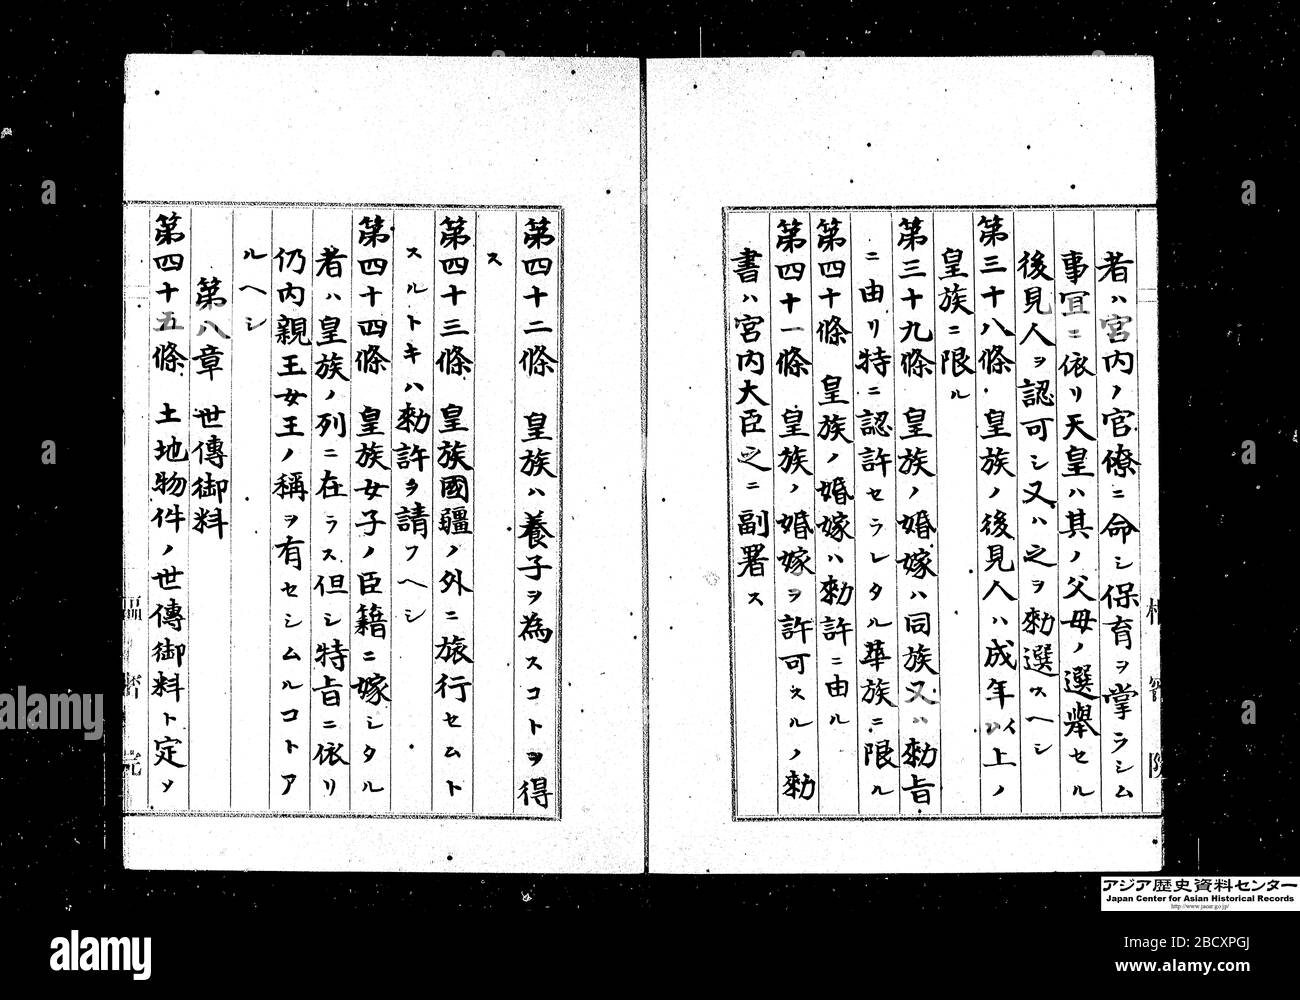 者ハ宮内ノ官僚ニ命シ保育ヲ掌ラシム
事宜ニ依リ天皇ハ其ノ父母ノ選舉セル
後見人ヲ認可シ又ハ之ヲ勅選スヘシ
第三十八條 皇族ノ後見人ハ成年以上ノ
皇族ニ限ル
第三十九條 皇族ノ婚嫁ハ同族又ハ勅旨
ニ由リ特ニ認許セラレタル華族ニ限ル
第四十條 皇族ノ婚嫁ハ勅許ニ由ル
第四十一條 皇族ノ婚嫁ヲ許可スルノ勅
書ハ宮内大臣之ニ副署ス
第四十二條 皇族ハ養子ヲ為スコトヲ得
ス
第四十三條 皇族國疆ノ外ニ旅行セムト
スルトキハ勅許ヲ請フヘシ
第四十四條 皇族女子ノ臣籍ニ嫁シタル
者ハ皇族ノ列ニ在ラス但シ特旨ニ依リ
仍内親王女王ノ稱ヲ有セシムルコトア
ルヘシ
第八章 世傳御料
第四十五條 土地物件ノ世傳御料ト定メ
アジア歴史資料センター
Japan Center for Asian Historical Records
http://www.jacar.go.jp/
a
a
a
a
a
a
alamy
alamy
Image ID: 2BCXPGJ
www.alamy.com